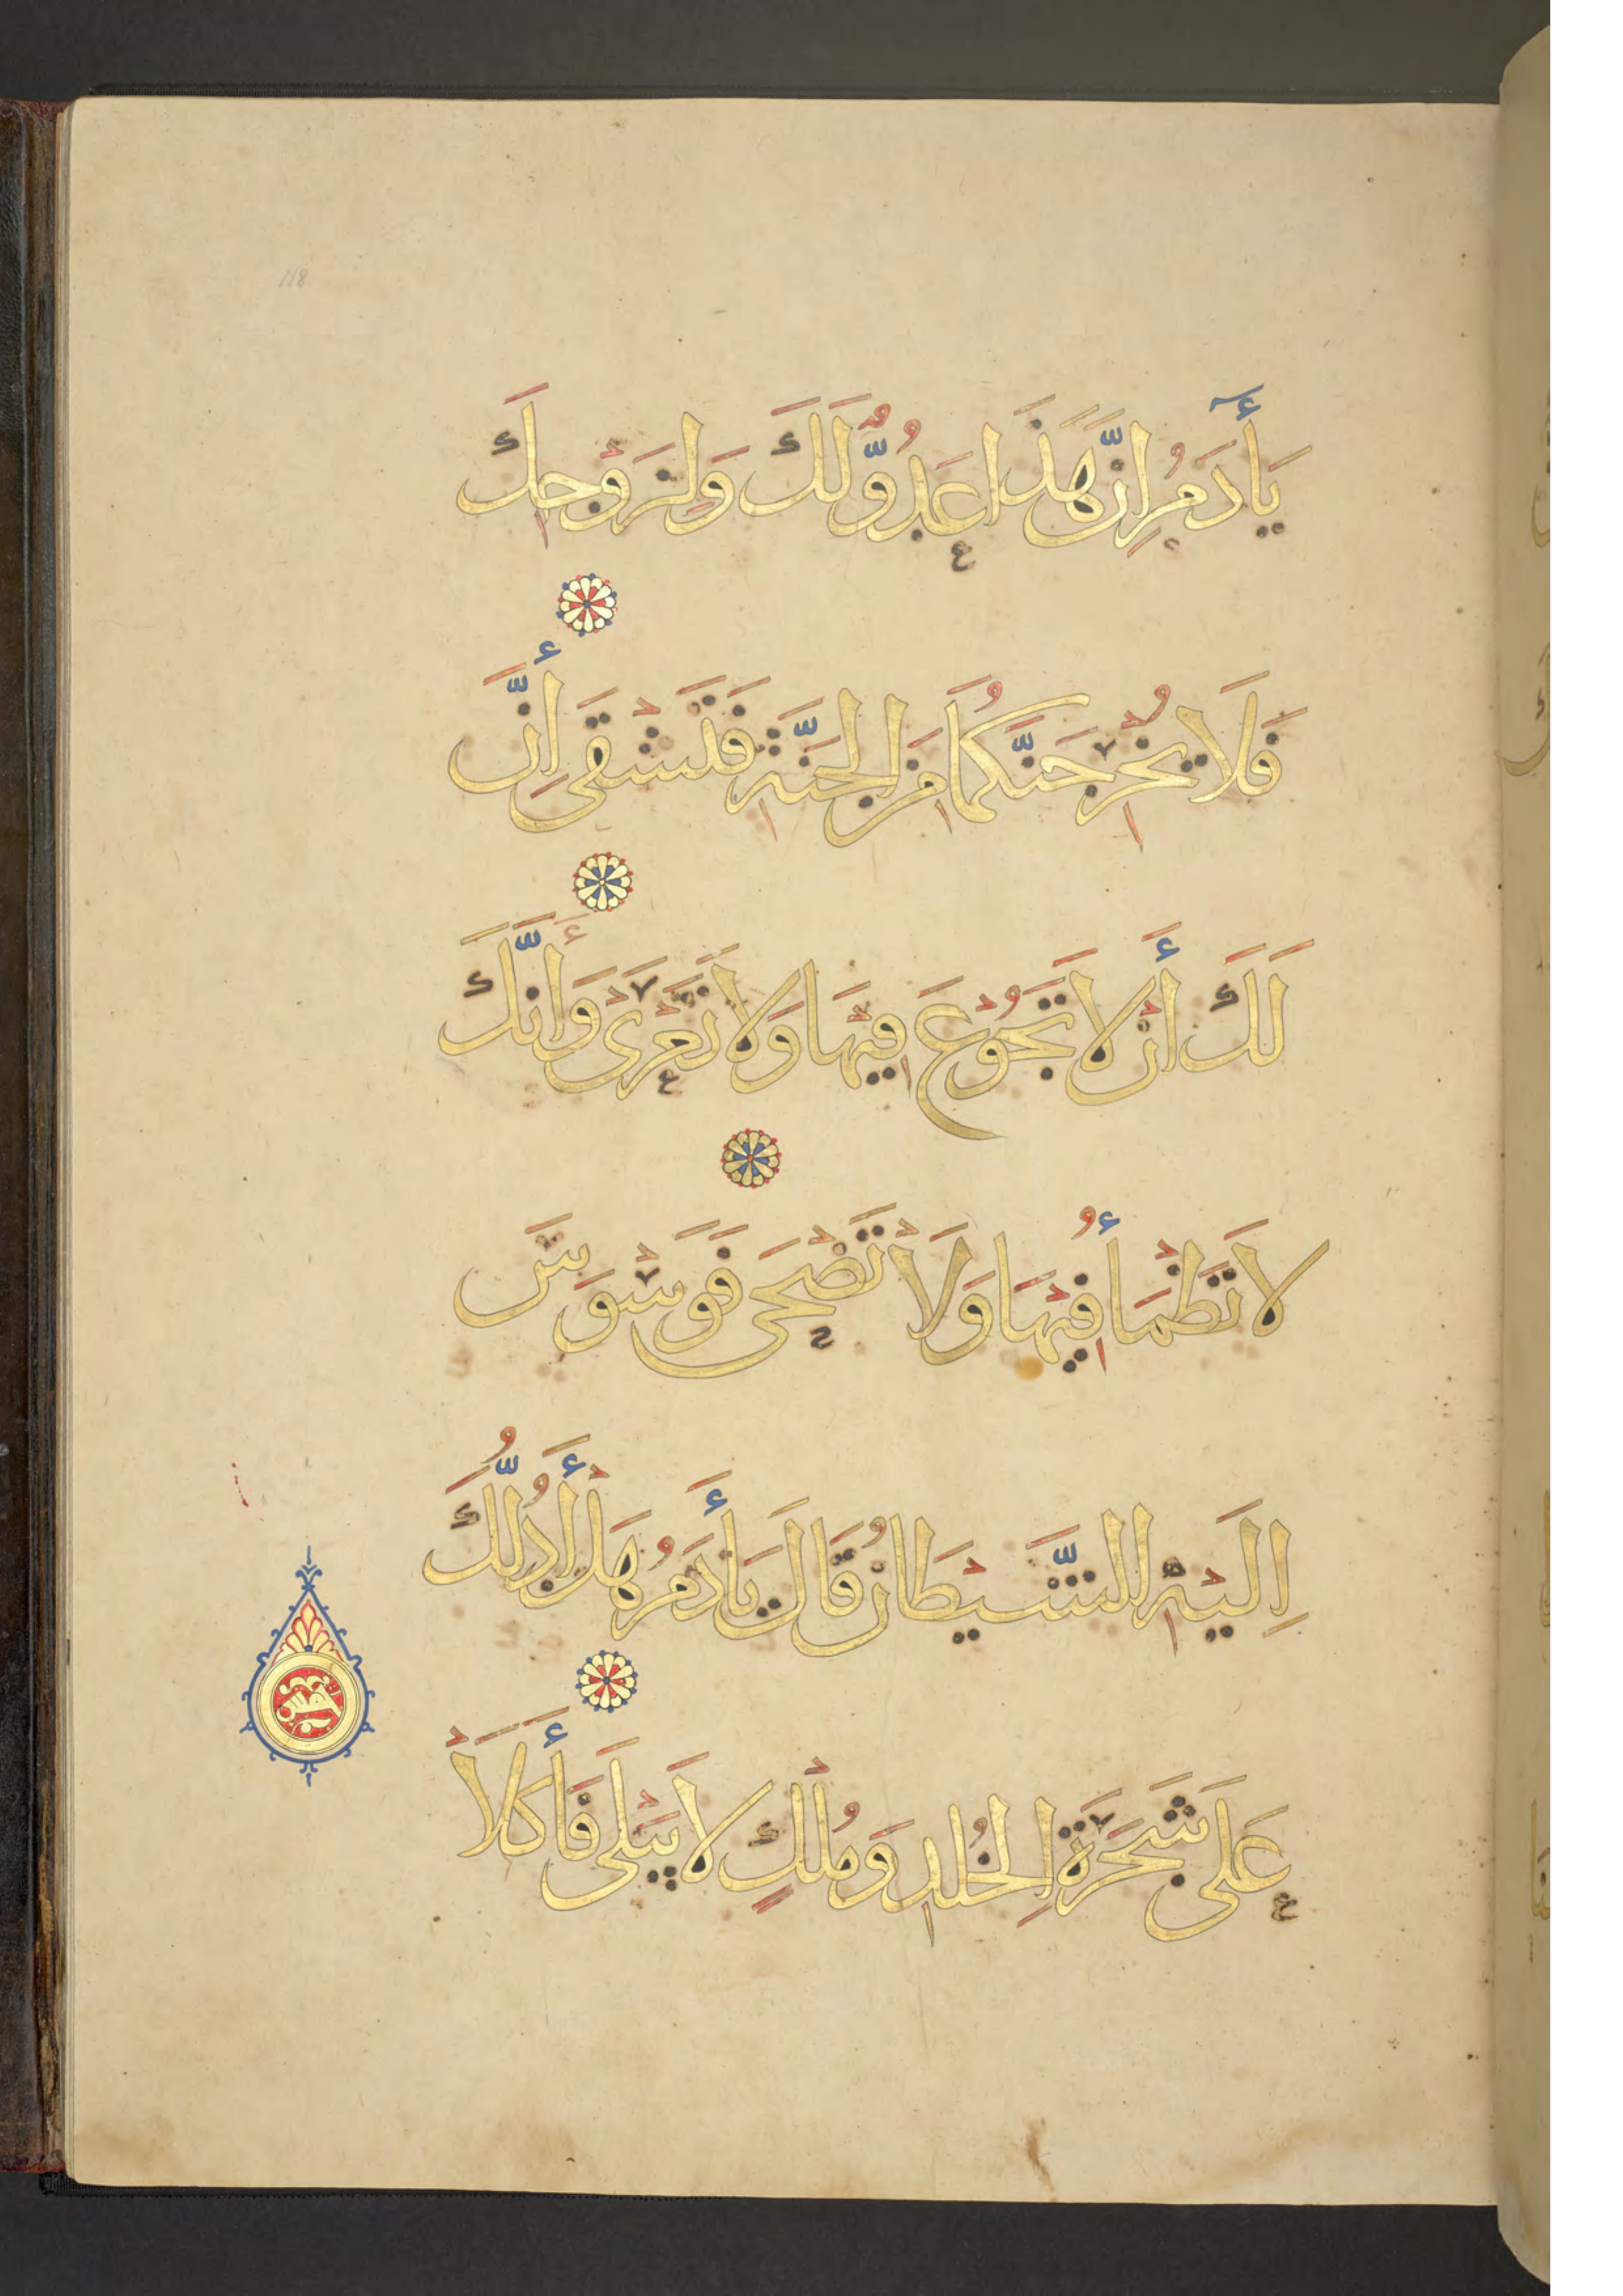 يَأٓدَمُ إِنَّ هَذَا عَدُوٌّ لَكَ وَلِزَوْجِكَ
فَلَا يُخْرِجَنَّكُمَا مِنَ الْجَنَّةِ فَتَشْقَى إِنَّ
لَكَ أَنْ لَا تَجُوْعَ فِيْهَا وَلَا تَعْرَى وَأَنَّكَ
لَا تَظْمَأُ فِيْهَا وَلَا تَضْحَى فَوَسْوَسَ
اِلَيْهِ الشَّيْطَانُ قَالَ يَأَدَمُ هَلْ أَدُلُّكَ
عَلَى شَجَرَةِ الْخُلْدِ وَمُلْكٍ لَا يَبْلَى فَأَكَلَا
118